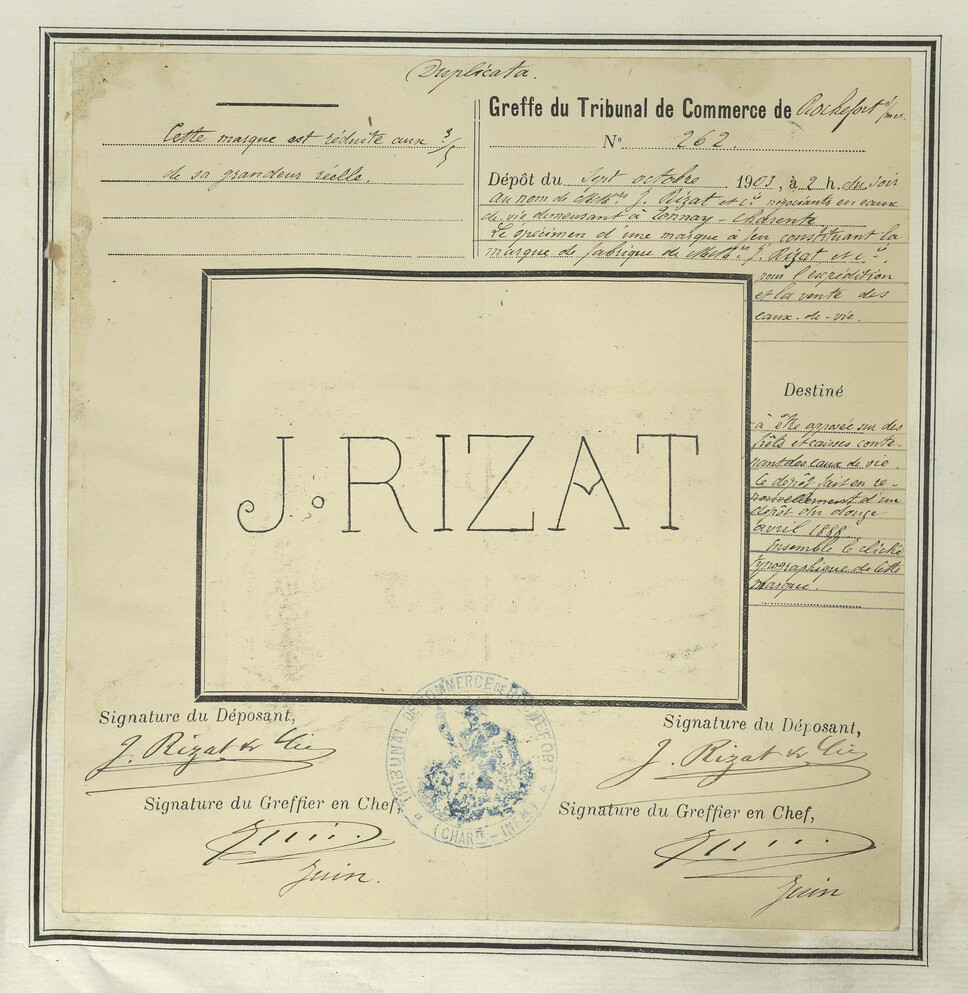 Duplicata.
Cette marque est réduite aux 3/5
de sa grandeur réelle.
Greffe du Tribunal de Commerce de Rochefort s/mer.
N° 262.
Dépôt du Sept octobre 1903, à 2 h. du soir
au nom de MM.rs J. Rizat et Cie négociants en eaux
de vie demeurant à Tonnay-Charente
Le spécimen d'une marque à feu constituant la
marque de fabrique de MM.rs J. Rizat et Cie,
pour l'expédition
et la vente des
eaux-de-vie.
Destiné
à être apposée sur des
fûts et caisses conte-
nant des eaux de vie.
Ce dépôt fait en re-
nouvellement d'un
dépôt du douze
avril 1888.
Ensemble le cliché
typographique de cette
marque.
J. RIZAT
TRIBUNAL DE COMMERCE DE ROCHEFORT
(CHARTE-INFRE)
Signature du Déposant,
J. Rizat & Cie
Signature du Greffier en Chef,
Juin.
Signature du Déposant,
J. Rizat & Cie
Signature du Greffier en Chef,
Juin